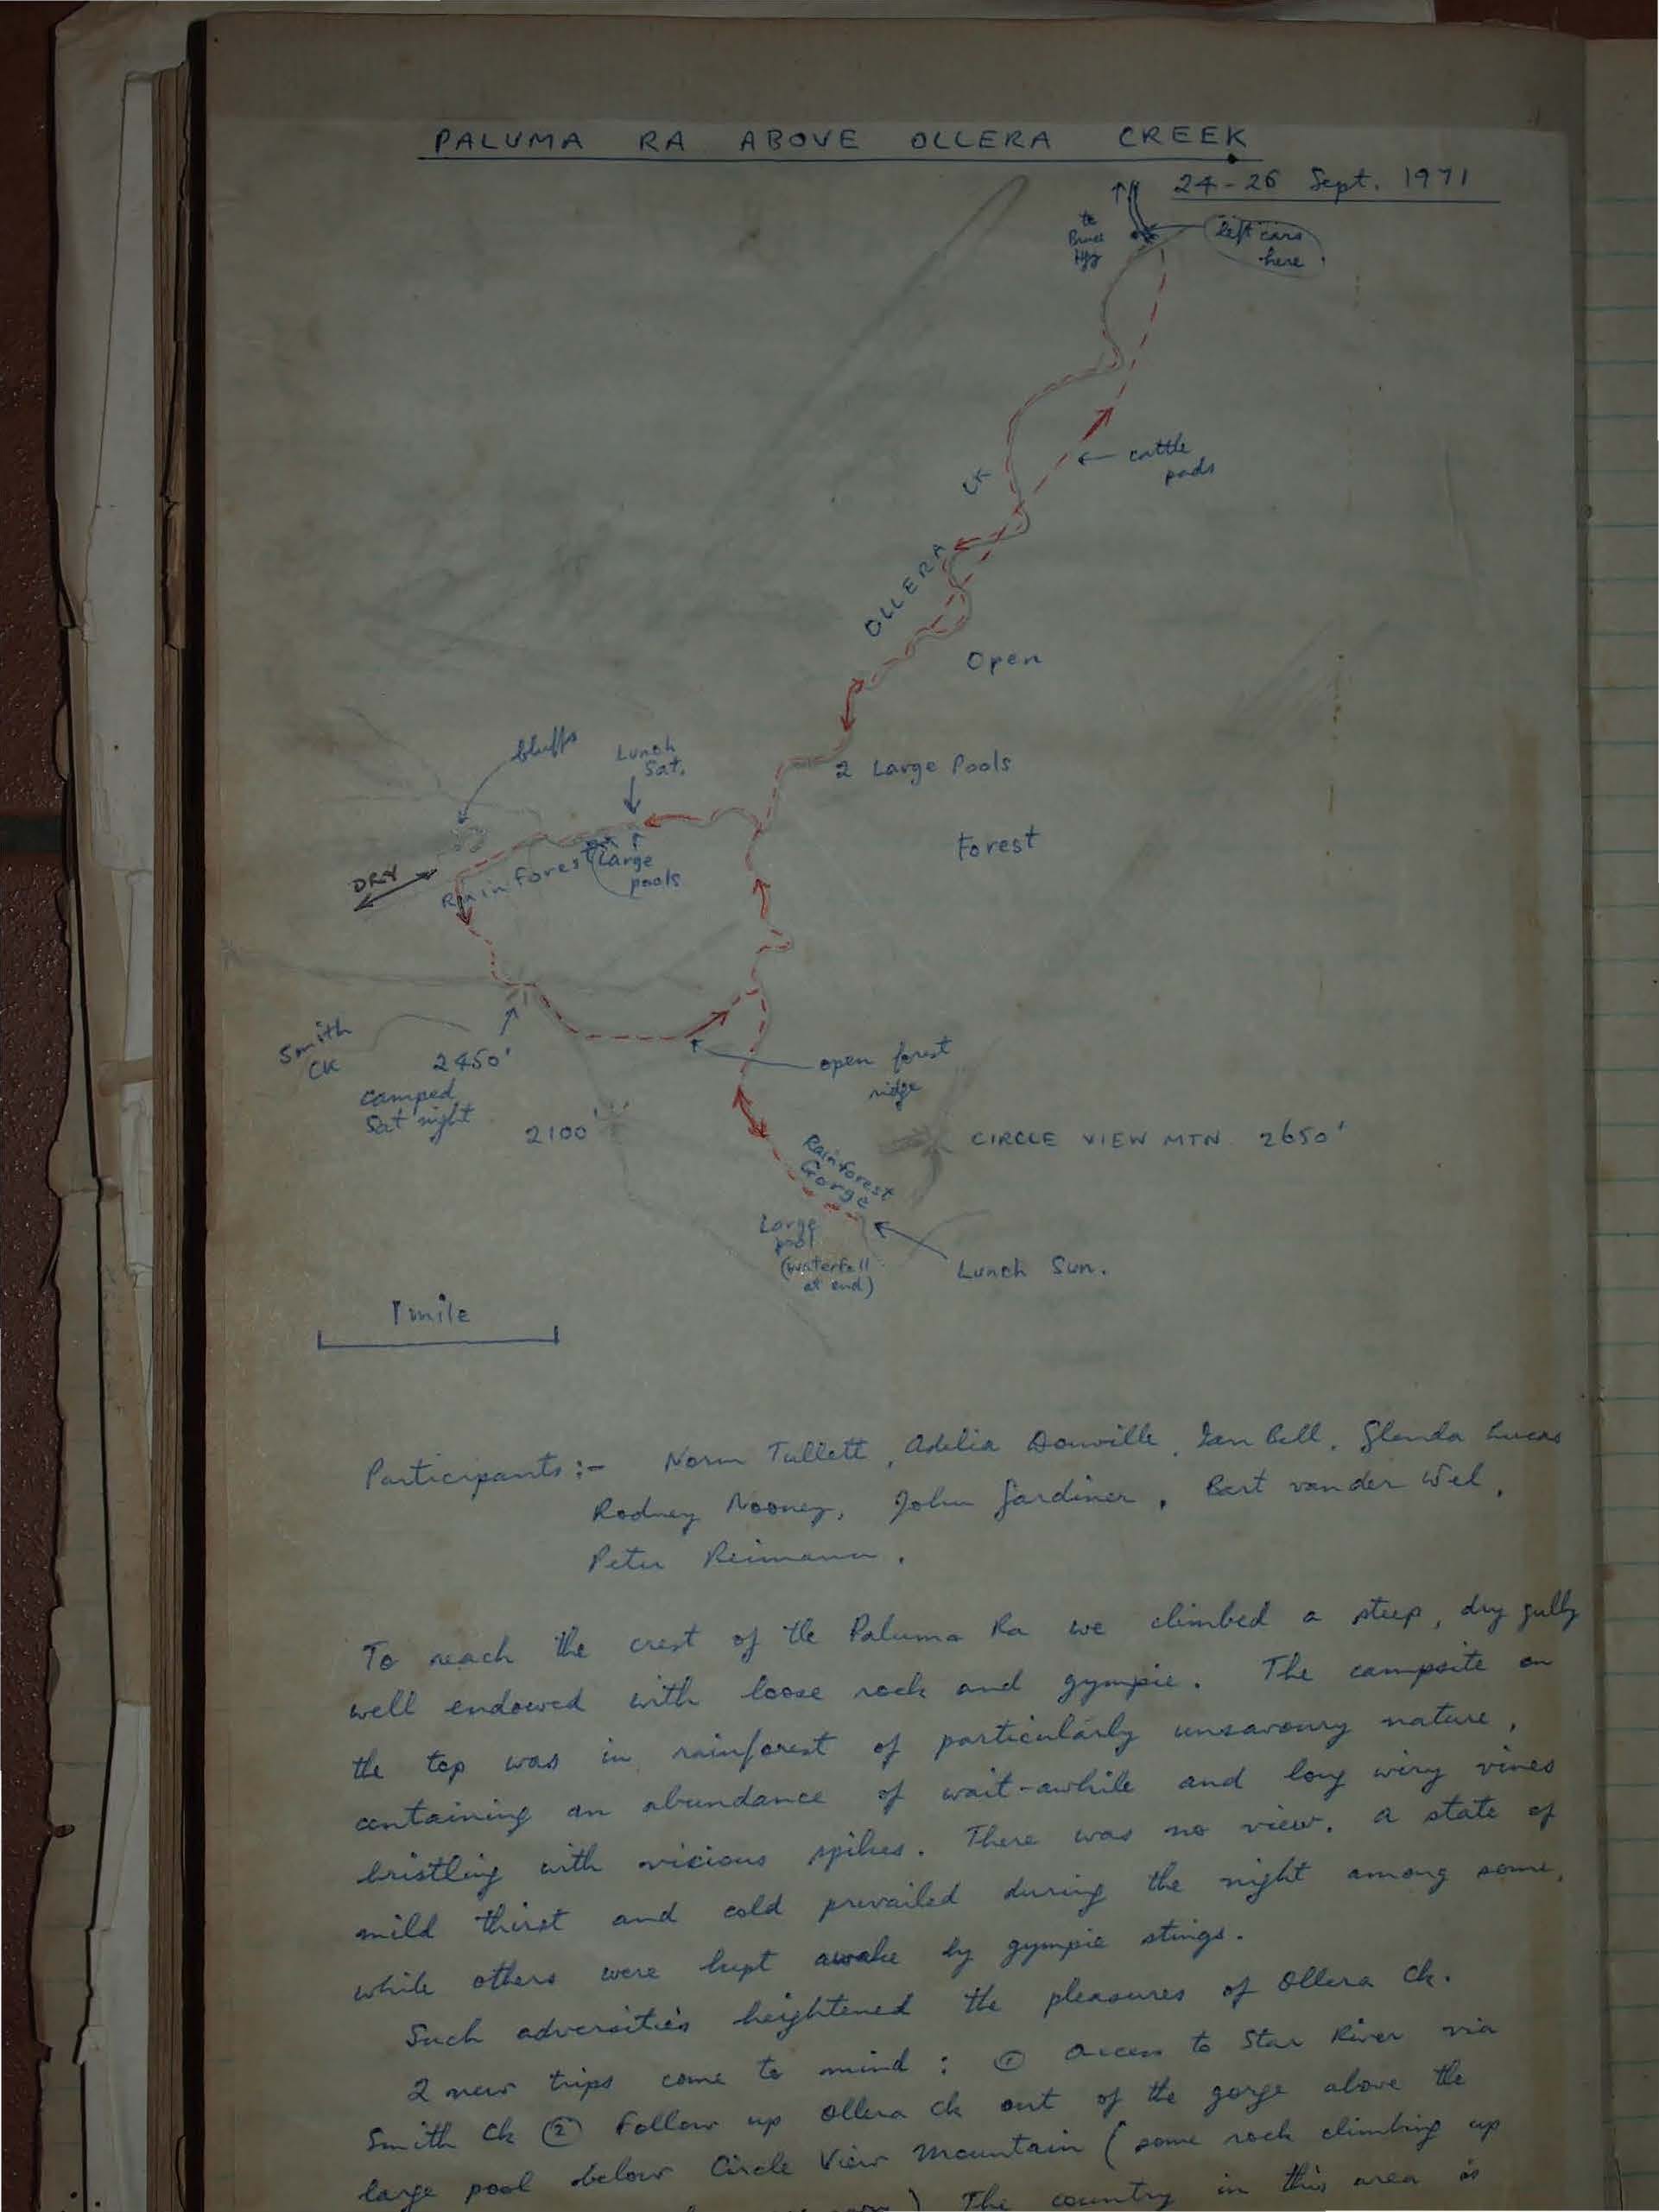 PALUMA RA ABOVE OLLERA CREEK
24-26 Sept. 1971
to
Bruce
Hgy
left cars
here
cattle
pads
OLLERA CK
Open
2 Large Pools
Forest
bluffs
Lunch
Sat.
DRY
Rainforest
Large
pools
Smith
CK
2450'
camped
Sat night
2100'
open forest
ridge
CIRCLE VIEW MTN. 2650'
Rainforest
Gorge
Large
pool
(waterfall
at end)
Lunch Sun.
1 mile
Participants :- Norm Tullett, Adelia Douville, Ian Bell, Glenda Lucas
Rodney Nooney, John Gardiner, Bart van der Wel,
Peter Reimann.
To reach the crest of the Paluma Ra we climbed a steep, dry gully
well endowed with loose rock and gympie. The campsite on
the top was in rainforest of particularly unsavoury nature,
containing an abundance of wait-awhile and long wiry vines
bristling with vicious spikes. There was no view. A state of
mild thirst and cold prevailed during the night among some,
while others were kept awake by gympie stings.
Such adversities heightened the pleasures of Ollera Ck.
2 new trips come to mind : ① Access to Star River via
Smith Ck ② Follow up Ollera Ck out of the gorge above the
large pool below Circle View Mountain (some rock climbing up
) The country in this area is